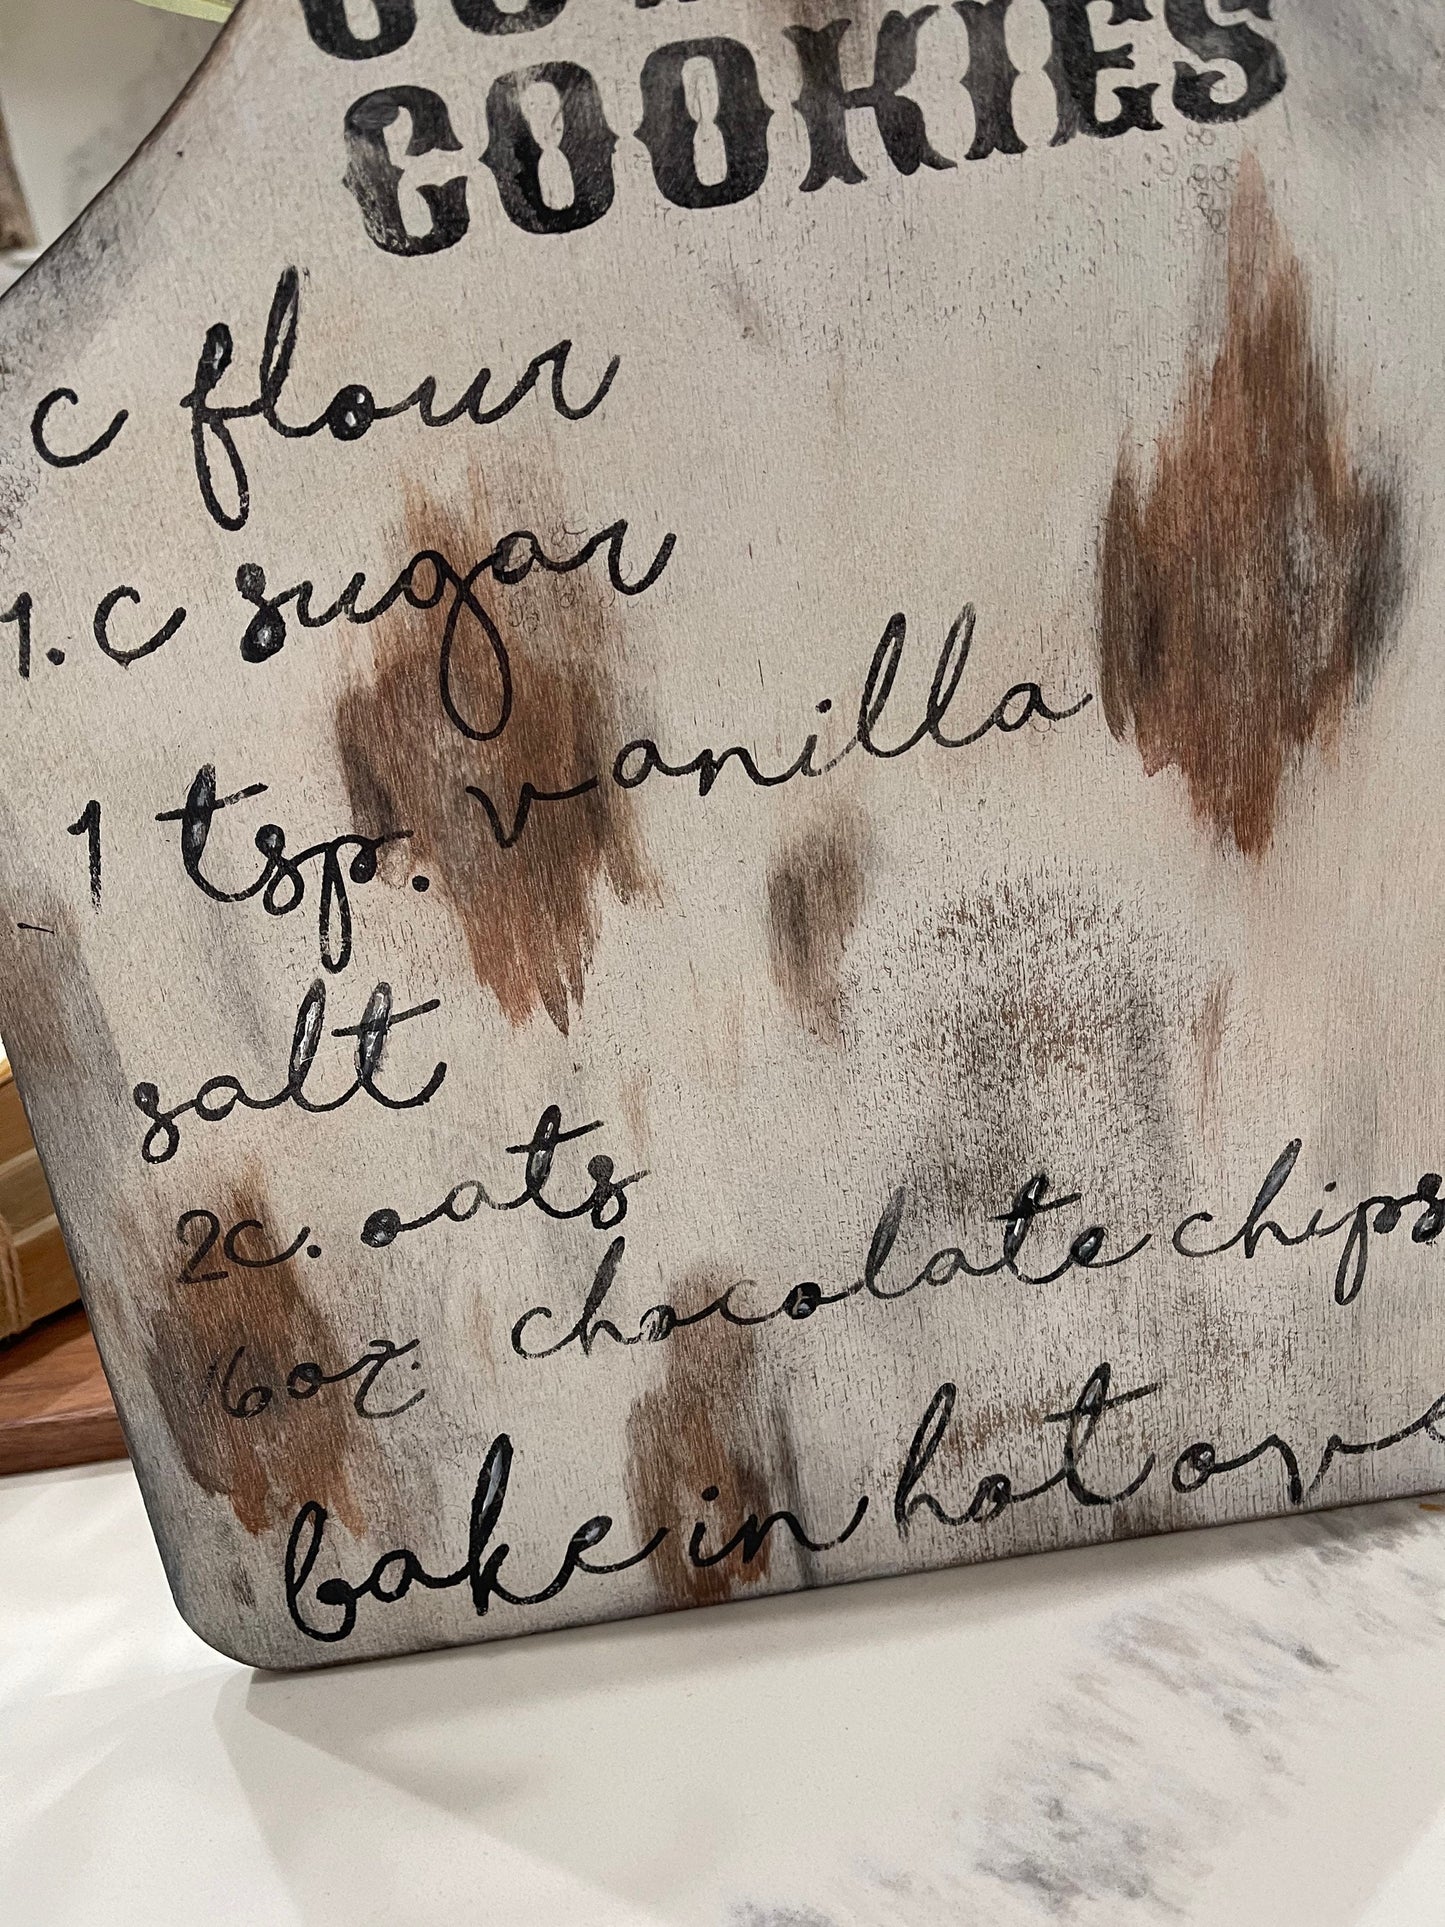 COOKIES
c flour
1. c sugar
1 tsp. vanilla
salt
2c. oats
16oz. chocolate chips
bake in hot